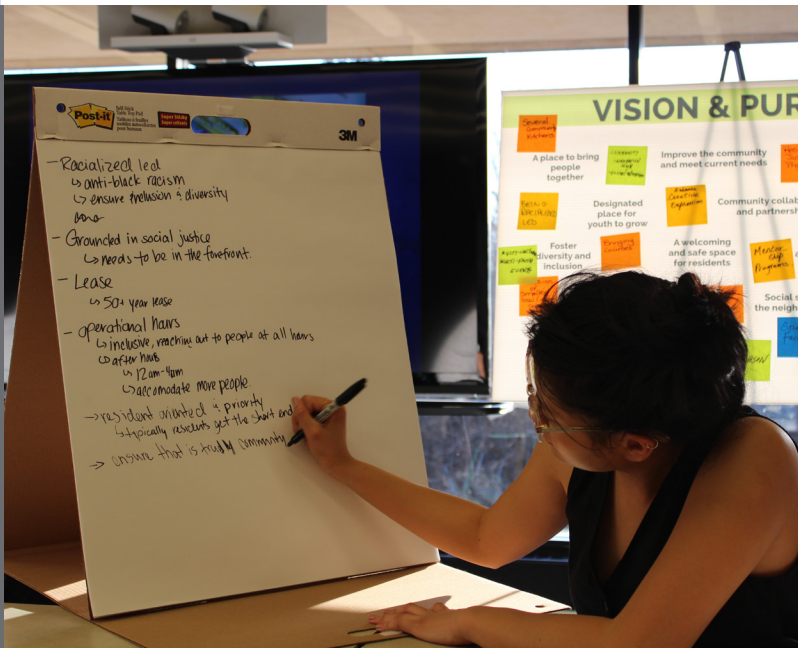 Post-it
Super Sticky
3M
– Racialized led
↳ anti-black racism
↳ ensure inclusion & diversity
– Grounded in social justice
↳ needs to be in the forefront.
– Lease
↳ 50+ year lease
– operational hours
↳ inclusive, reaching out to people at all hours
↳ after hours
↳ 12am-4am
↳ accomodate more people.
→ resident oriented & priority
↳ typically residents get the short end
→ ensure that is truly community
VISION & PUR
Several
Community
Kitchens
A place to bring
people
together
Improve the community
and meet current needs
BEING
RACIALIZED
LED
Designated
place for
youth to grow
Community collab
and partnersh
Foster
diversity and
inclusion
Bringing
A welcoming
and safe space
for residents
Mentor-
ship
Programs
Social s
the neigh